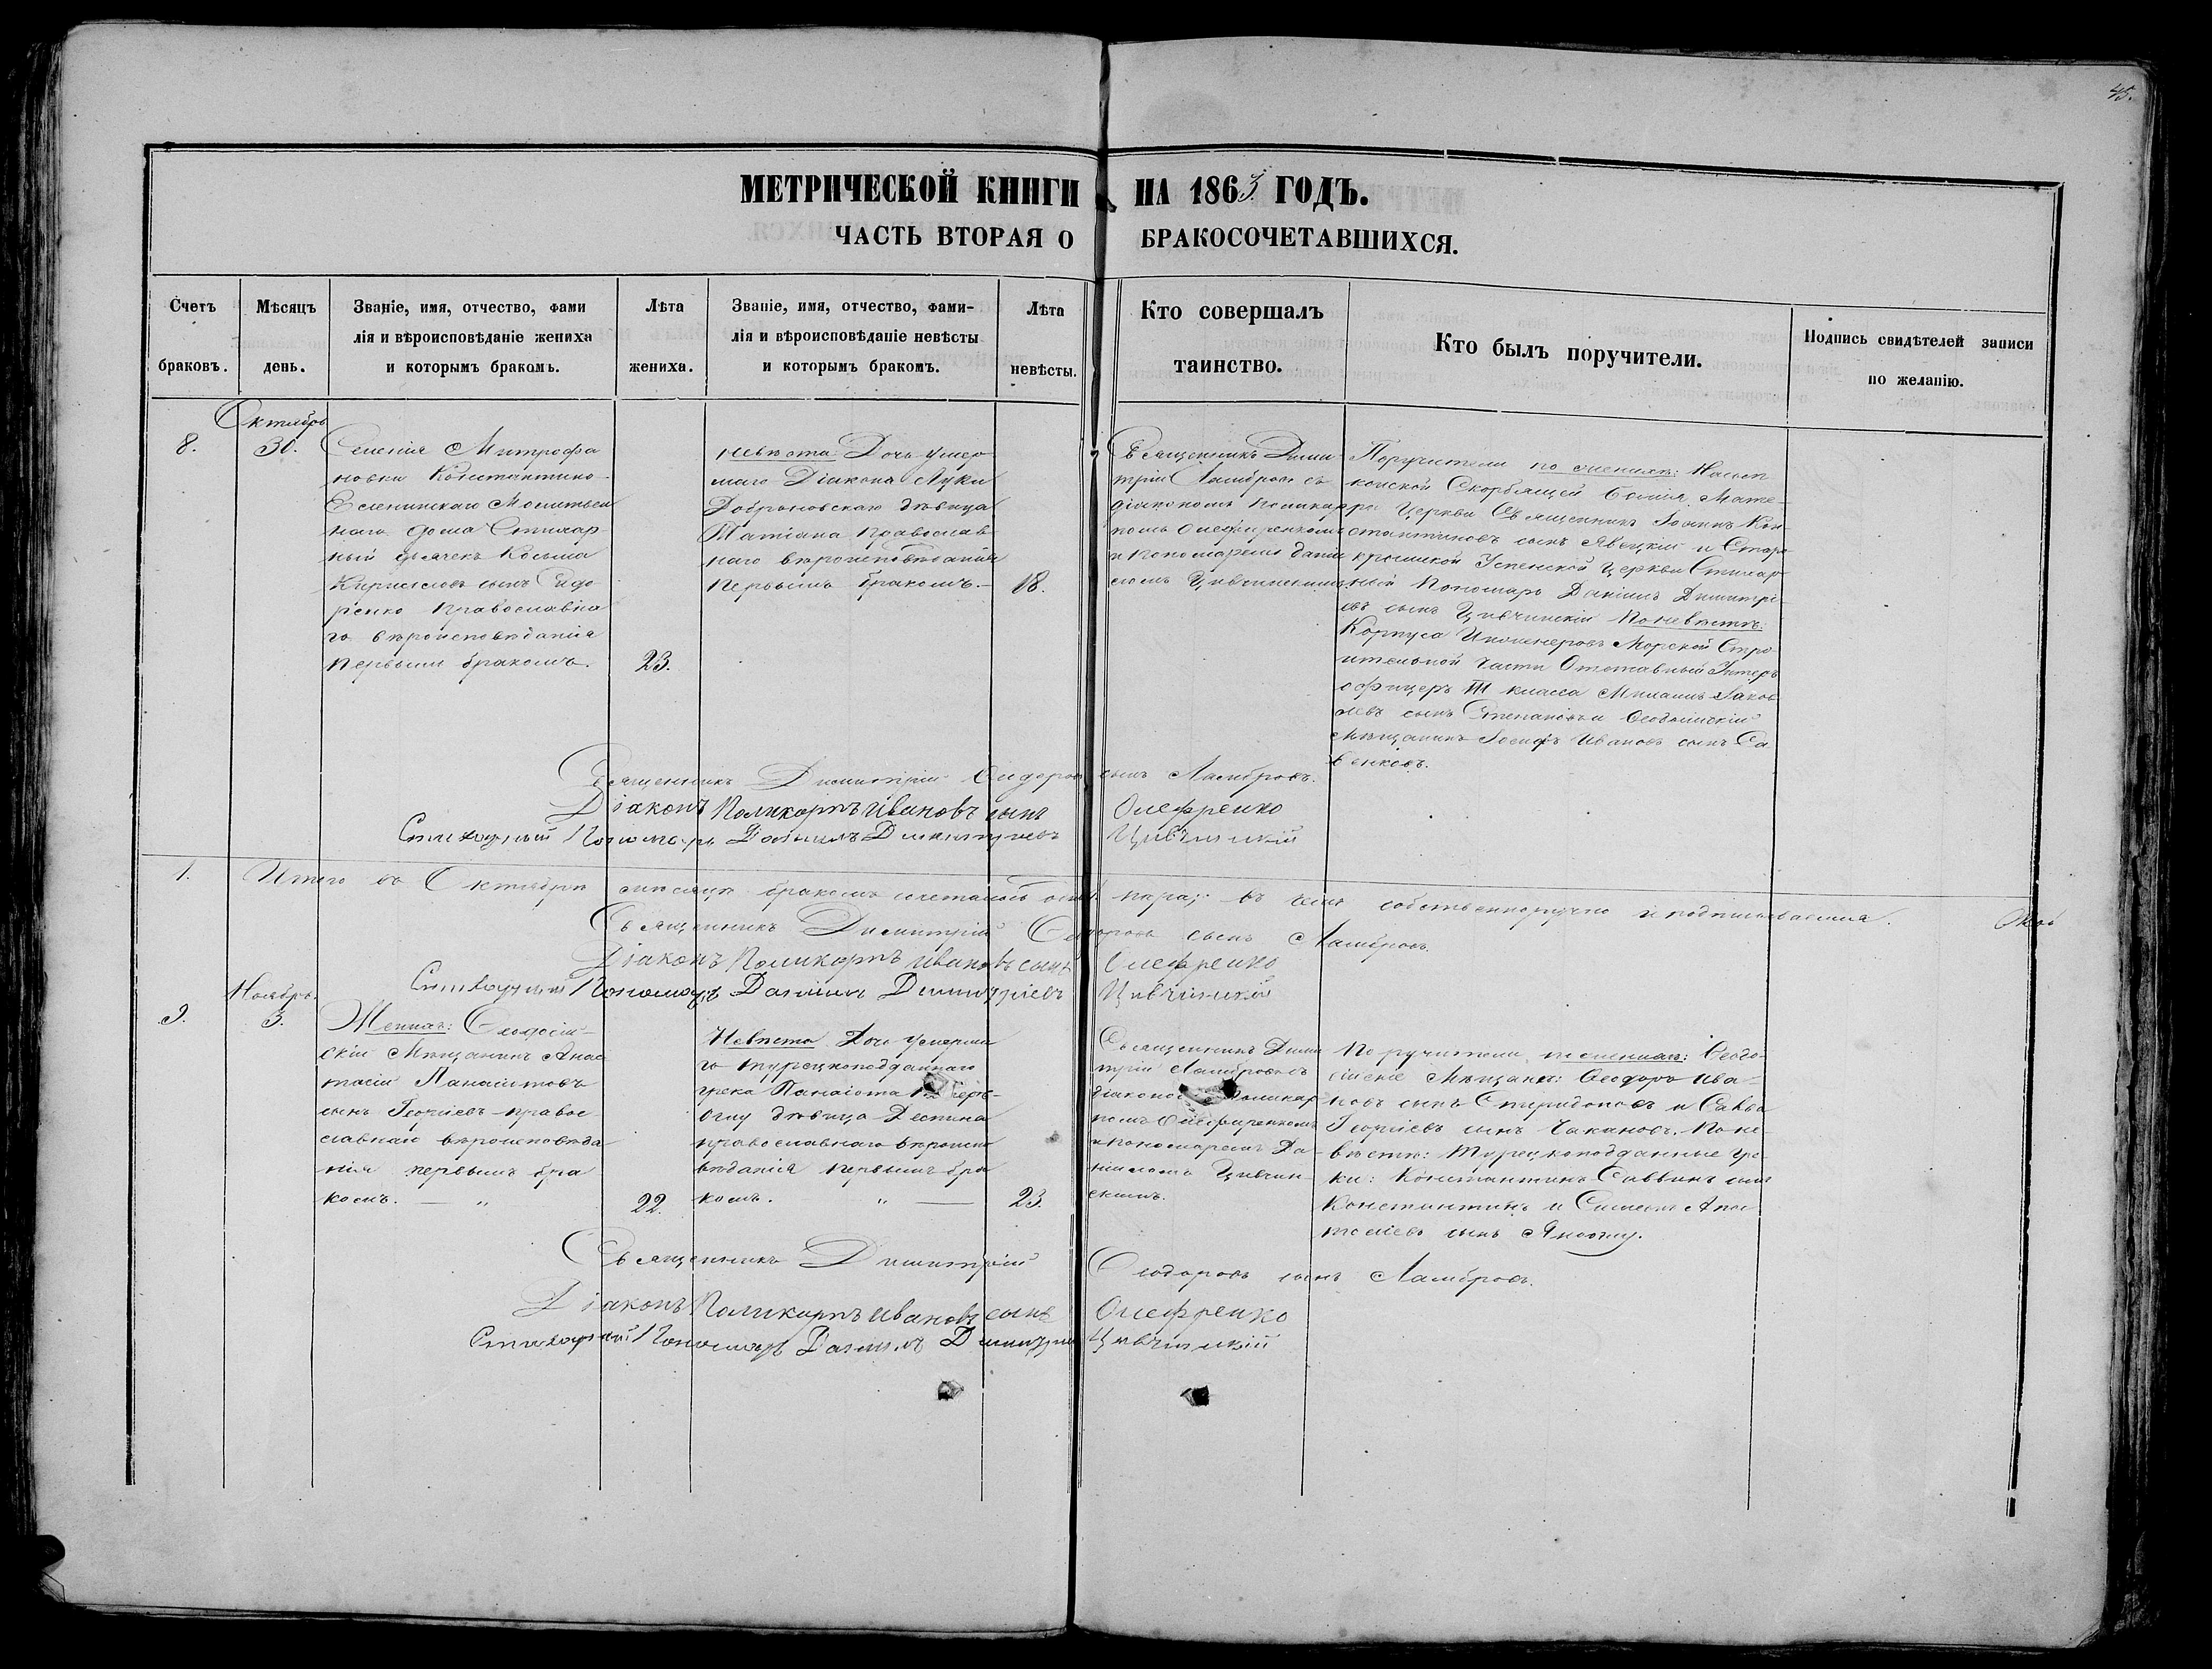 45.
МЕТРИЧЕСКОЙ КНИГИ НА 1863 ГОДЪ.
ЧАСТЬ ВТОРАЯ О БРАКОСОЧЕТАВШИХСЯ.
Счетъ браковъ.
Мѣсяцъ день.
Званіе, имя, отчество, фами
лія и вѣроисповѣданіе жениха
и которымъ бракомъ.
Лѣта жениха.
Званіе, имя, отчество, фами-
лія и вѣроисповѣданіе невѣсты
и которымъ бракомъ.
Лѣта невѣсты.
Кто совершалъ
таинство.
Кто былъ поручители.
Подпись свидѣтелей записи
по желанію.
Октябрь
8.
30.
Селенія Митрофа
новки Константино-
Еленинскаго Молитвен
наго дома Стихар
ный дьячекъ Косьма
Кирилловъ сынъ Сидо
ренко православна
го вѣроисповѣданія
первымъ бракомъ.
23.
невѣста Дочь умер
шаго Діакона Луки
Доброновскаго дѣвица
Татіана православ
наго вѣроисповѣданія
первымъ бракомъ.
18.
Священникъ Дими
трій Ламбровъ съ
діакономъ Поликар
помъ Олефиренкомъ
и пономаремъ Даніи
ломъ Цивчинскимъ
Поручители по женихѣ:
конской Скорбящей Божія Мате-
ри Церкви Священникъ Іоаннъ Кон
стантиновъ сынъ Явецкій и Старо
крымской Успенской Церкви Стихар
ный Пономарь Даніилъ Димитрі
евъ сынъ Цивчинскій По невѣстѣ:
Корпуса Инженеровъ Морской Стро
ительной части Отставный Унтеръ
офицеръ III класса Яков
левъ сынъ Степановъ и Ѳеодосійскій
Мѣщанинъ Іосифъ Ивановъ сынъ Са
венковъ.
Священникъ Димитрій Ѳеодоровъ сынъ Ламбровъ.
Діаконъ Поликарпъ Ивановъ сынъ Олефренко
Стихарный Пономарь Даніилъ Димитріевъ Цивчинскій
1.
Итого въ Октябрѣ мѣсяцѣ бракомъ сочеталось одна пара; въ чемъ собственноручно и подписываемся.
Священникъ Димитрій Ѳеодоровъ сынъ Ламбровъ.
Діаконъ Поликарпъ Ивановъ сынъ Олефренко
Стихарный Пономарь Даніилъ Димитріевъ Цивчинскій
Ноябрь.
9.
3.
Женихъ: Ѳеодосій-
скій Мѣщанинъ Анас
тасій Панаіотовъ
сынъ Георгіевъ правос-
лавнаго вѣроисповѣда
нія первымъ бра
комъ. — „
22.
Невѣста Дочь умерша
го турецкоподданнаго
грека Панаіота
Оглу дѣвица Деспина
православнаго вѣроиспо
вѣданія первымъ бра
комъ. „ —
23.
Священникъ Дими
трій Ламбровъ съ
діакономъ Поликар
помъ Олефиренкомъ
и пономаремъ Да-
ніиломъ Цивчин-
скимъ.
Поручители по женихѣ: Ѳеодо-
сійскіе Мѣщане: Ѳеодоръ Ива-
новъ сынъ Спиридоновъ и Савва
Георгіевъ сынъ Чакановъ. По не-
вѣстѣ: Турецкоподданные Гре-
ки: Константинъ Саввинъ сынъ
Константинъ и Симеонъ Апос
толіевъ сынъ
Священникъ Димитрій Ѳеодоровъ сынъ Ламбровъ.
Діаконъ Поликарпъ Ивановъ сынъ Олефренко
Стихарный Пономарь Даніилъ Димитріевъ Цивчинскій